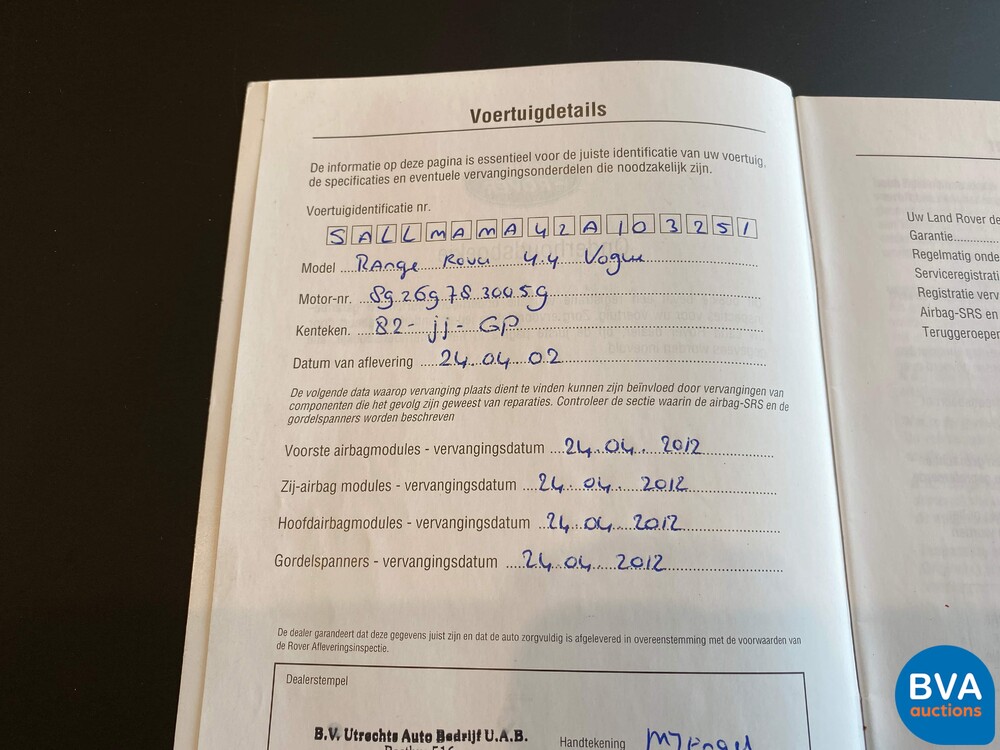 Voertuigdetails
De informatie op deze pagina is essentieel voor de juiste identificatie van uw voertuig,
de specificaties en eventuele vervangingsonderdelen die noodzakelijk zijn.
Voertuigidentificatie nr.
SALLMAMA42A103251
Model ....Range Rover 4.4 Vogue
Motor-nr. ..8g26g7830059
Kenteken. ...82-jj-GP
Datum van aflevering ....24.04.02
De volgende data waarop vervanging plaats dient te vinden kunnen zijn beïnvloed door vervangingen van
componenten die het gevolg zijn geweest van reparaties. Controleer de sectie waarin de airbag-SRS en de
gordelspanners worden beschreven
Voorste airbagmodules - vervangingsdatum ...24.04.2012
Zij-airbag modules - vervangingsdatum ...24.04.2012
Hoofdairbagmodules - vervangingsdatum ..24.04.2012
Gordelspanners - vervangingsdatum ....24.04.2012
De dealer garandeert dat deze gegevens juist zijn en dat de auto zorgvuldig is afgeleverd in overeenstemming met de voorwaarden van
de Rover Afleveringsinspectie.
Dealerstempel
B.V. Utrechts Auto Bedrijf U.A.B.
Handtekening
Uw Land Rover de
Garantie..........
Regelmatig onde
Serviceregistrati
Registratie verv
Airbag-SRS en
Teruggeroepen
BVA
auctions